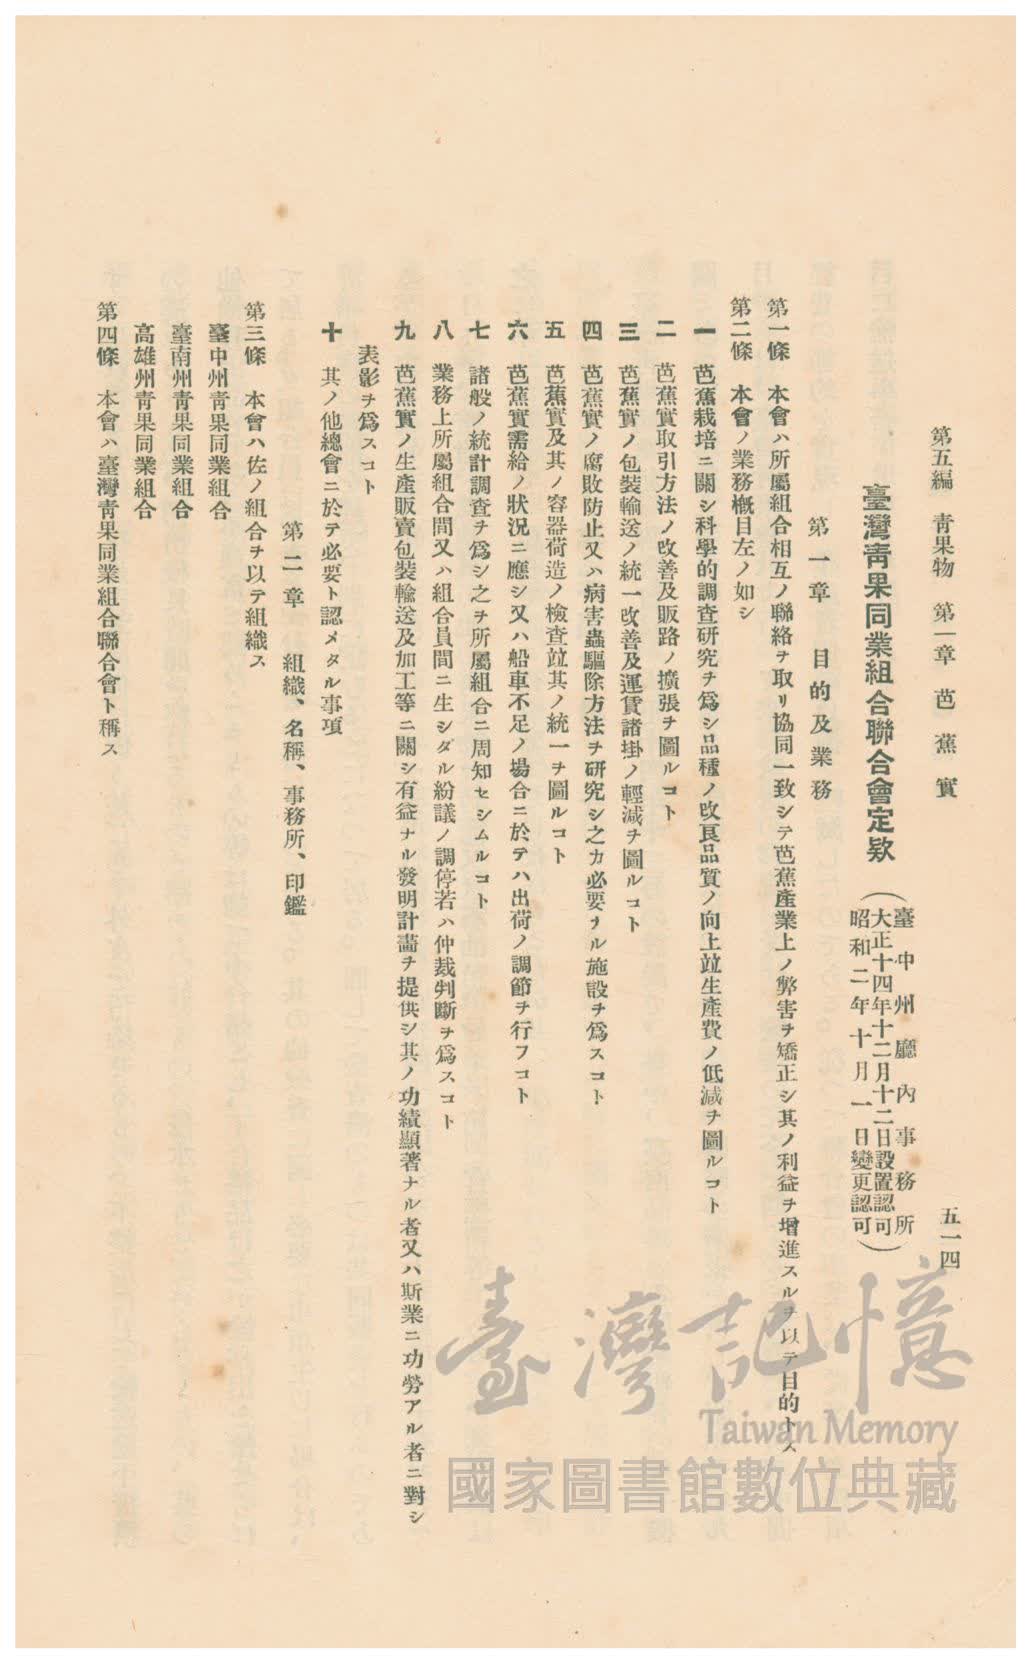 第五編 靑果物 第一章 芭蕉實
五一四
臺灣靑果同業組合聯合會定欵
(臺中州廳內事務所
大正十四年十二月十二日設置認可
昭和二年十月一日變更認可)
第一章 目的及業務
第一條 本會ハ所屬組合相互ノ聯絡ヲ取リ協同一致シテ芭蕉產業上ノ弊害ヲ矯正シ其ノ利益ヲ增進スルヲ以テ目的トス
第二條 本會ノ業務槪目左ノ如シ
一 芭蕉栽培ニ關シ科學的調查硏究ヲ爲シ品種ノ改良品質ノ向上竝生產費ノ低減ヲ圖ルコト
二 芭蕉實取引方法ノ改善及販路ノ擴張ヲ圖ルコト
三 芭蕉實ノ包裝輸送ノ統一改善及運賃諸掛ノ輕減ヲ圖ルコト
四 芭蕉實ノ腐敗防止又ハ病害蟲驅除方法ヲ硏究シ之カ必要ナル施設ヲ爲スコト
五 芭蕉實及其ノ容器荷造ノ檢查竝其ノ統一ヲ圖ルコト
六 芭蕉實需給ノ狀況ニ應シ又ハ船車不足ノ場合ニ於テハ出荷ノ調節ヲ行フコト
七 諸般ノ統計調查ヲ爲シ之ヲ所屬組合ニ周知セシムルコト
八 業務上所屬組合間又ハ組合員間ニ生シダル紛議ノ調停若ハ仲裁判斷ヲ爲スコト
九 芭蕉實ノ生產販賣包裝輸送及加工等ニ關シ有益ナル發明計畫ヲ提供シ其ノ功績顯著ナル者又ハ斯業ニ功勞アル者ニ對シ
表彰ヲ爲スコト
十 其ノ他總會ニ於テ必要ト認メタル事項
第二章 組織、名稱、事務所、印鑑
第三條 本會ハ佐ノ組合ヲ以テ組織ス
臺中州靑果同業組合
臺南州靑果同業組合
高雄州靑果同業組合
第四條 本會ハ臺灣靑果同業組合聯合會ト稱ス
臺灣記憶
Taiwan Memory
國家圖書館數位典藏